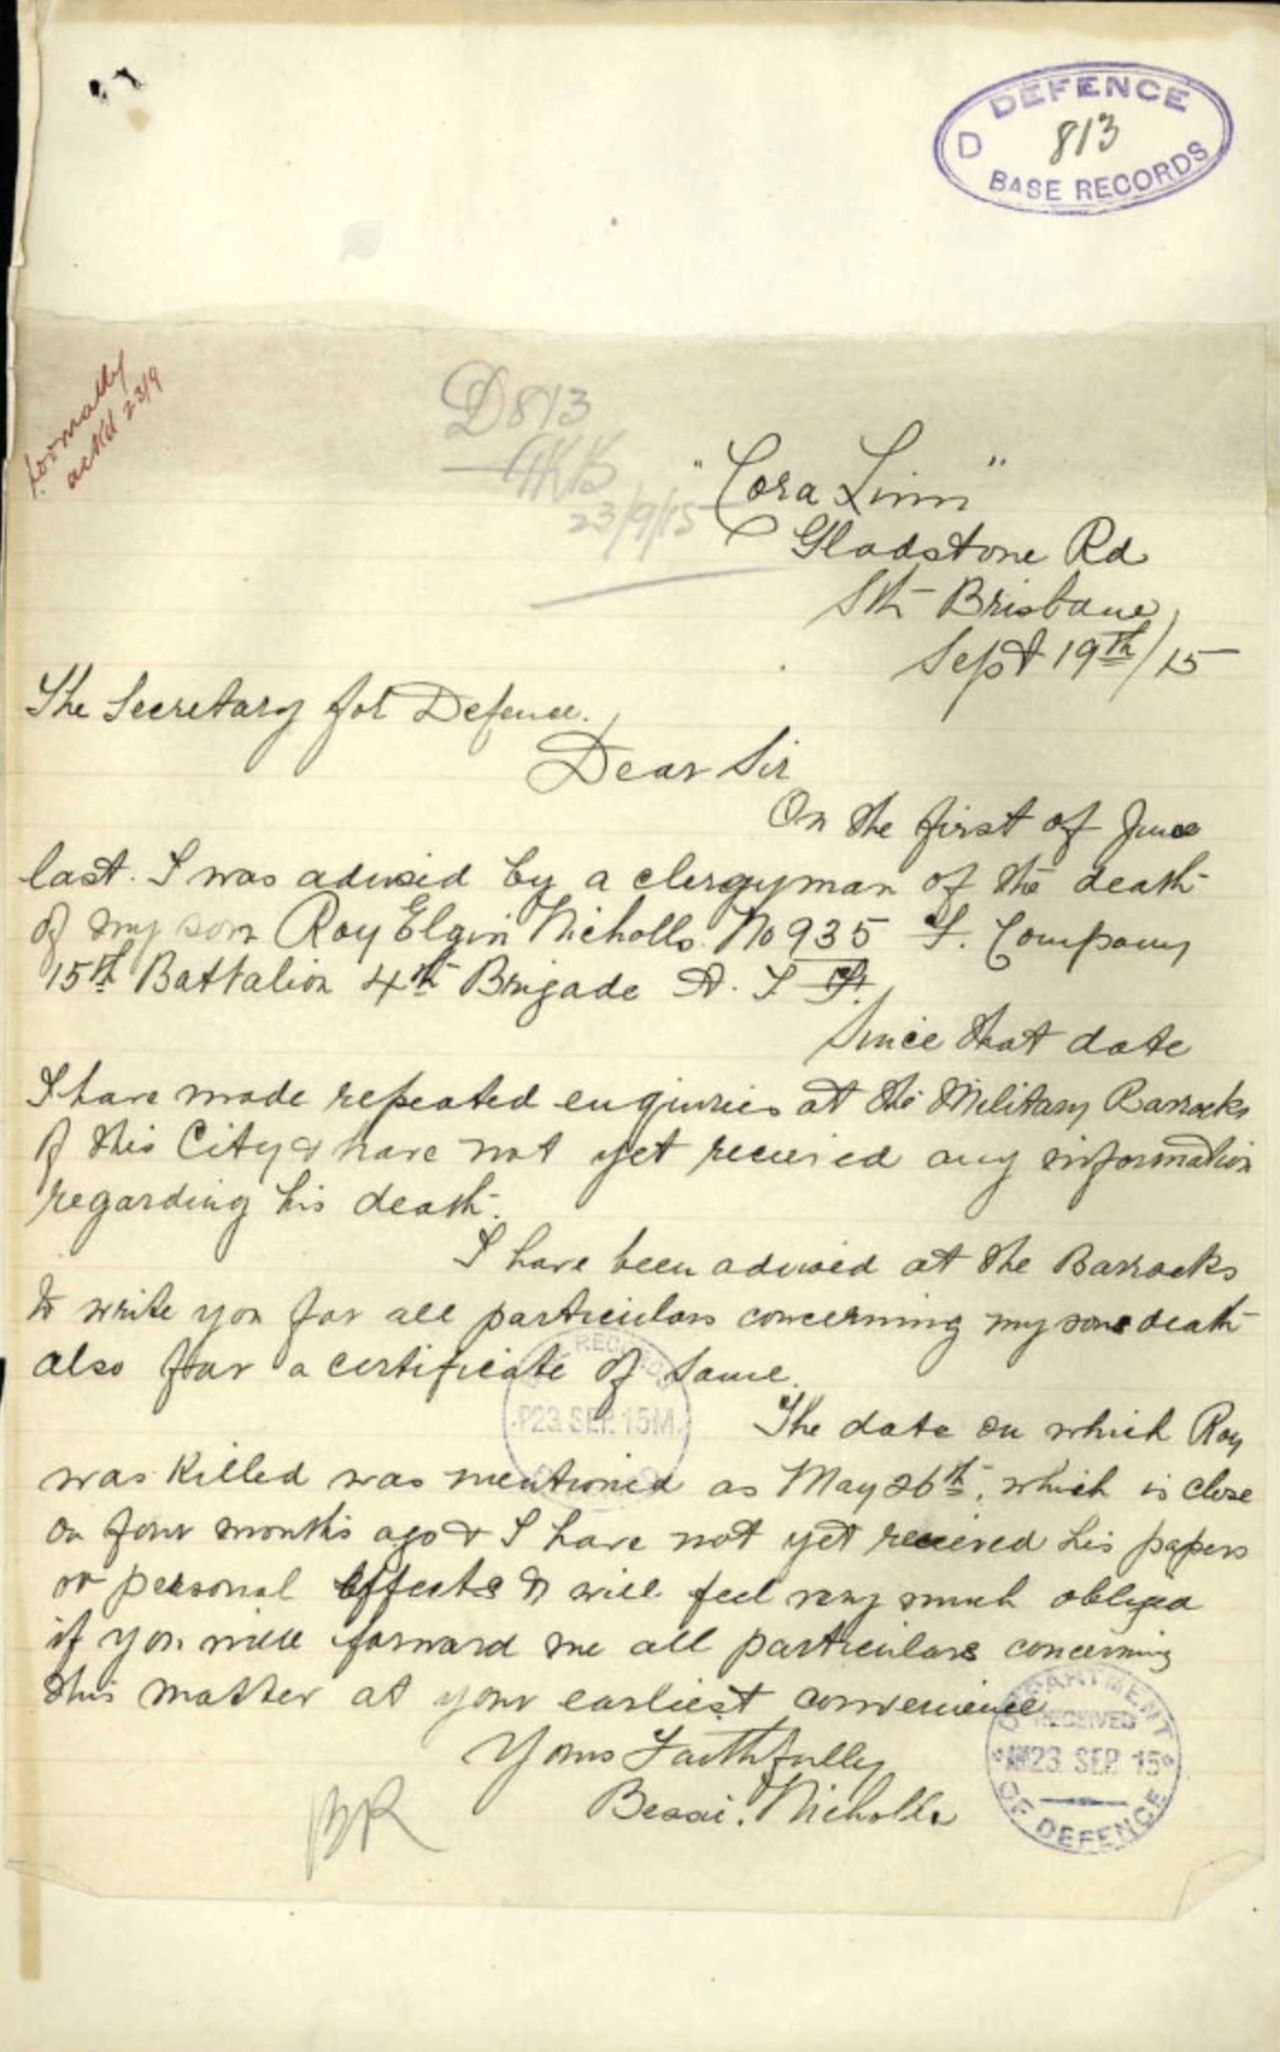 DEFENCE
D 813
BASE RECORDS
formally
ack'd 23/9
D813
23/9/15
"Cora Linn"
Gladstone Rd
Sth Brisbane,
Sept 19th/15
The Secretary for Defence.,
Dear Sir
On the first of June
last. I was advised by a clergyman of the death
of my son Roy Elgin Nicholls No 935 F. Company
15th Battalion 4th Brigade A. I. F.
Since that date
I have made repeated enquiries at the Military Barracks
of this City & have not yet received any information
regarding his death.
I have been advised at the Barracks
to write you for all particulars concerning my sons death
also for a certificate of same.
RECORDS
P23 SEP. 15M.
The date on which Roy
was killed was mentioned as May 26th, which is close
on four months ago & I have not yet received his papers
or personal effects & will feel very much obliged
if you will forward me all particulars concerning
this matter at your earliest convenience
Yours Faithfully
Bessie. Nicholls
BR
DEPARTMENT
RECEIVED
AM23 SEP. 15
OF DEFENCE